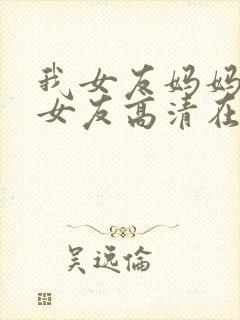 我女友妈妈
女友高清在
吴远倫